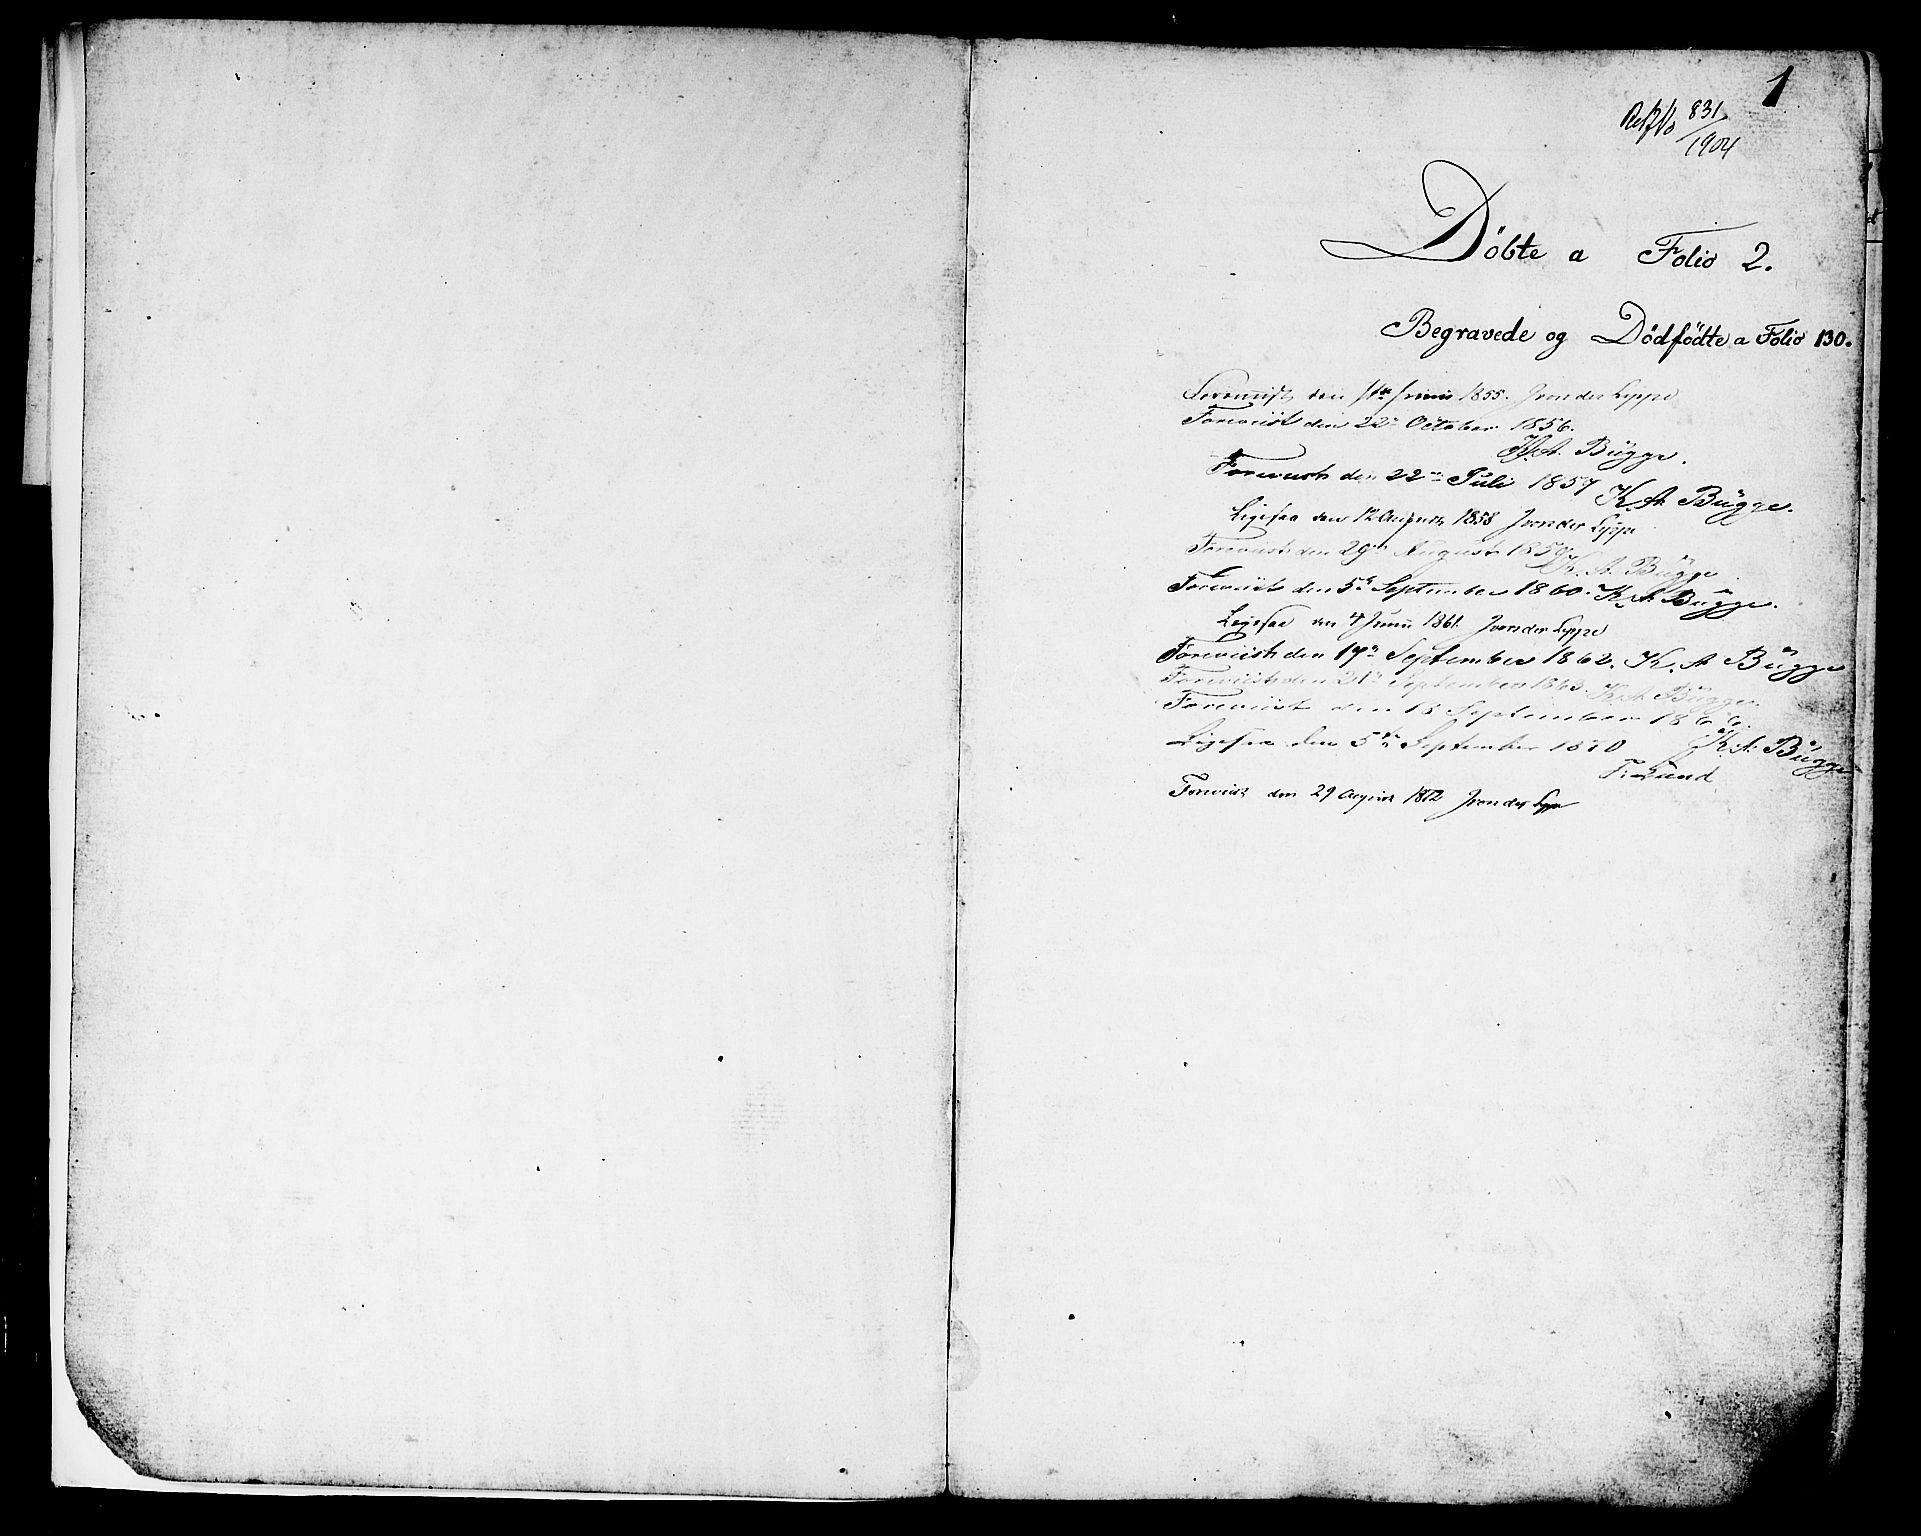 1
831
/1904
Döbte a Folio 2.
Begravede og Dödfödte a Folio 130.
Foreviist den Juni 1855. J von der Lippe
Foreviist den 22de October 1856.
K. A. Bügge.
Foreviist den 22de Juli 1857 K. A. Bügge.
Ligesaa den 12 August 1858 J von der Lippe
Foreviist den 29de August 1859.
K. A. Bügge
Foreviist den 5te September 1860. K. A. Bügge.
Ligesaa den 4 Juni 1861. J von der Lippe
Foreviist den 17de September 1862. K. A. Bügge
Foreviist den 21de September 1863. K. A. Bügge.
Foreviist den 18 September 1866.
K. A. Bügge
Ligesaa den 5te September 1870
F: Lund
Foreviist den 29 August 1872 J von der Lippe